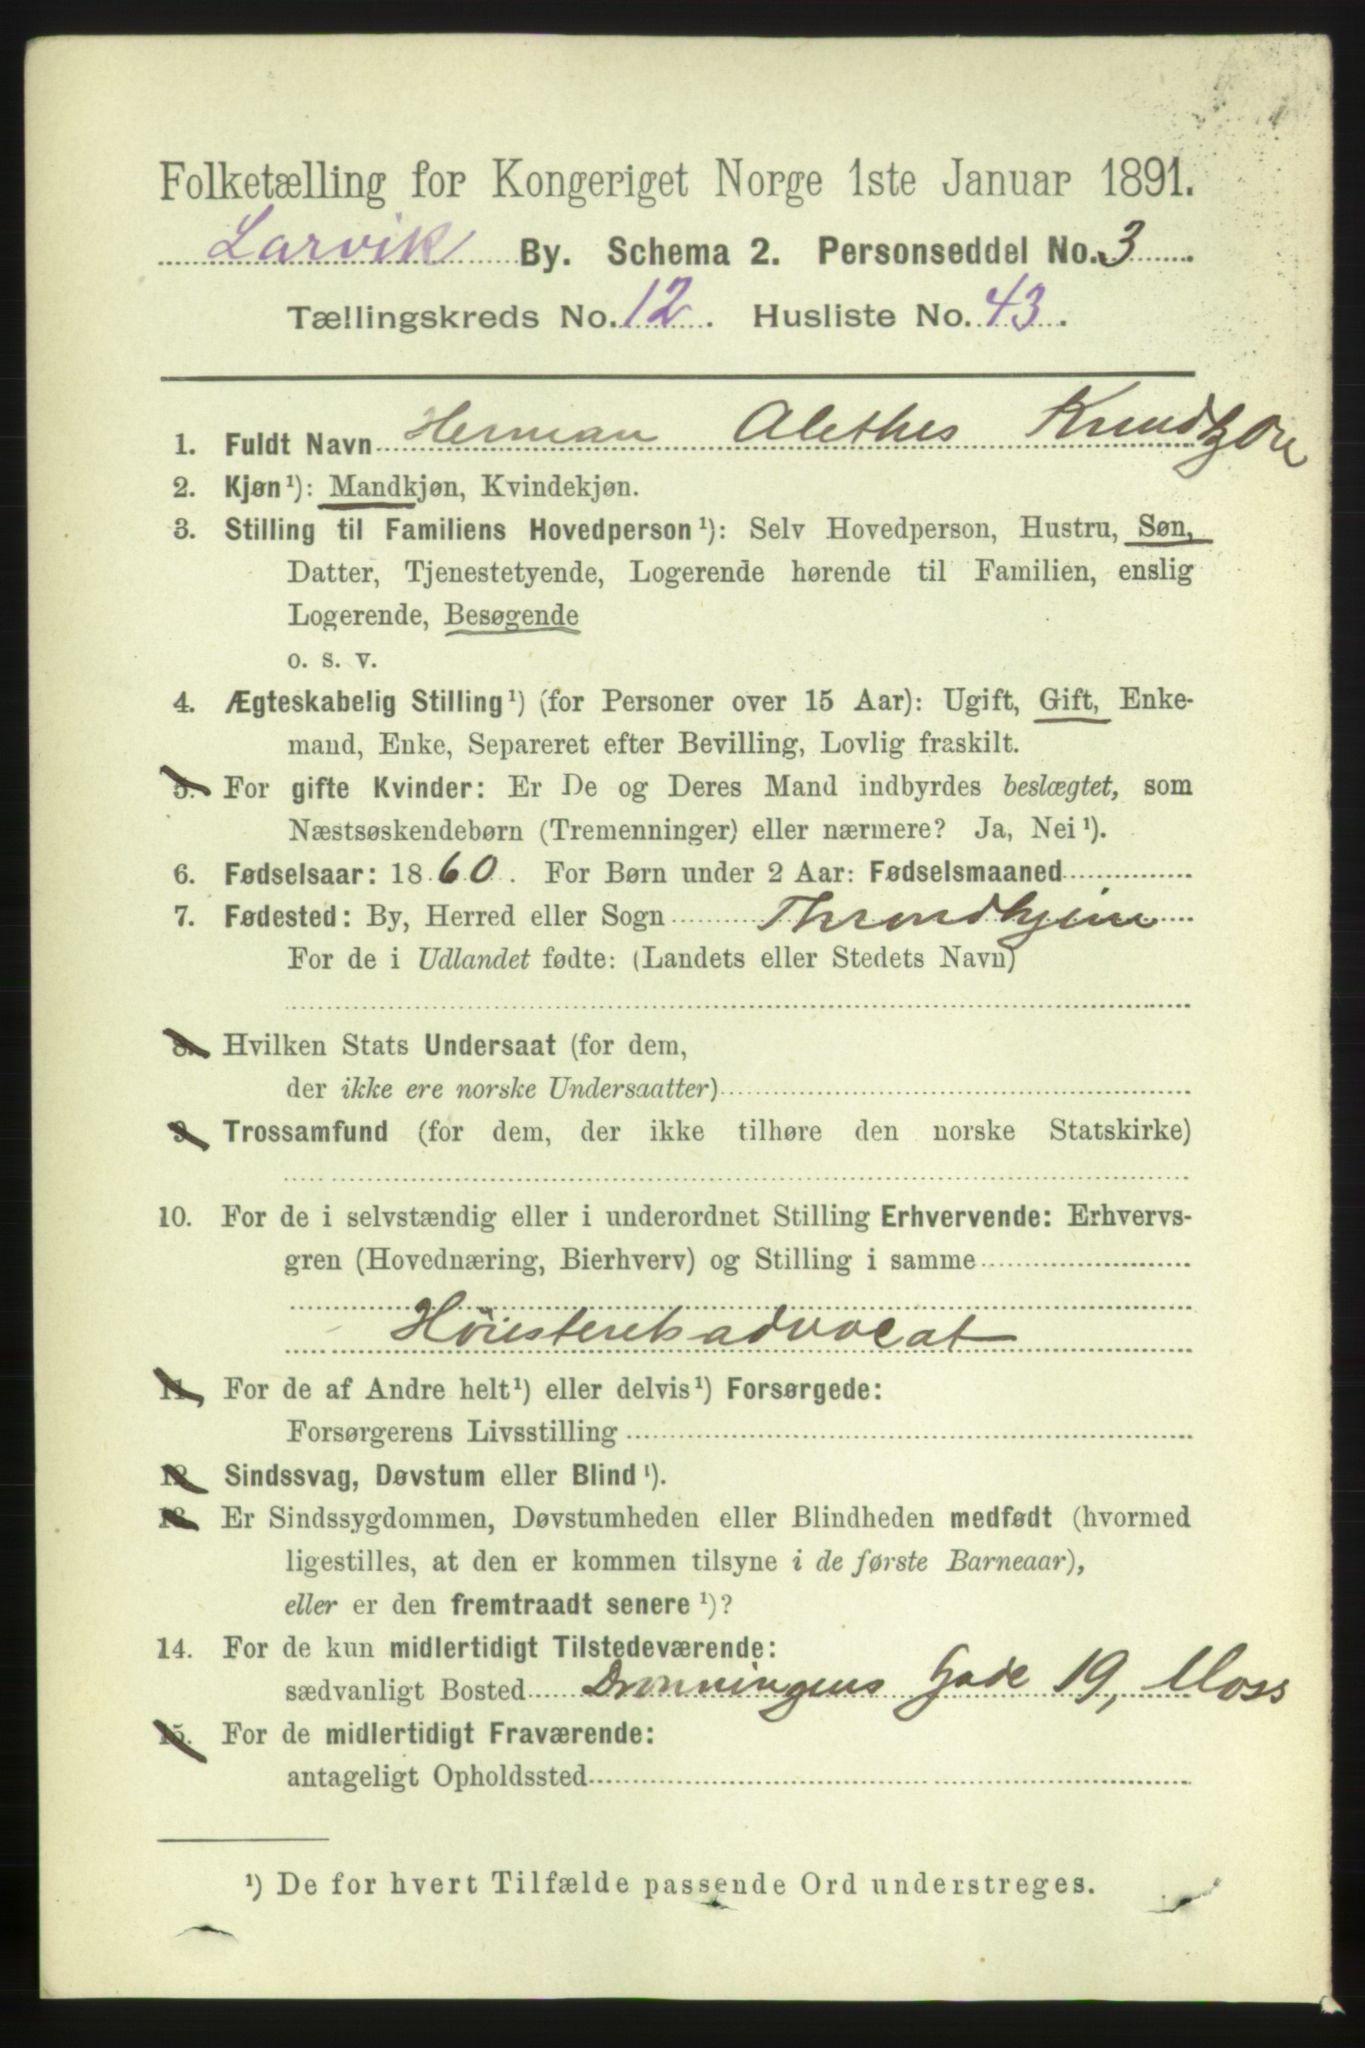 Folketælling for Kongeriget Norge 1ste Januar 1891.
Larvik By. Schema 2. Personseddel No. 3
Tællingskreds No. 12. Husliste No. 43.
1. Fuldt Navn Herman Alethes Knudtzon
2. Kjøn¹): Mandkjøn, Kvindekjøn.
3. Stilling til Familiens Hovedperson¹): Selv Hovedperson, Hustru, Søn,
Datter, Tjenestetyende, Logerende hørende til Familien, enslig
Logerende, Besøgende
o. s. v.
4. Ægteskabelig Stilling¹) (for Personer over 15 Aar): Ugift, Gift, Enke-
mand, Enke, Separeret efter Bevilling, Lovlig fraskilt.
5. For gifte Kvinder: Er De og Deres Mand indbyrdes beslægtet, som
Næstsøskendebørn (Tremenninger) eller nærmere? Ja, Nei¹).
6. Fødselsaar: 1860. For Børn under 2 Aar: Fødselsmaaned
7. Fødested: By, Herred eller Sogn Throndhjem
For de i Udlandet fødte: (Landets eller Stedets Navn)
8. Hvilken Stats Undersaat (for dem,
der ikke ere norske Undersaatter)
9. Trossamfund (for dem, der ikke tilhøre den norske Statskirke)
10. For de i selvstændig eller i underordnet Stilling Erhvervende: Erhvervs-
gren (Hovednæring, Bierhverv) og Stilling i samme
Høiesteretsadvocat
11. For de af Andre helt¹) eller delvis¹) Forsørgede:
Forsørgerens Livsstilling
12. Sindssvag, Døvstum eller Blind¹).
13. Er Sindssygdommen, Døvstumheden eller Blindheden medfødt (hvormed
ligestilles, at den er kommen tilsyne i de første Barneaar),
eller er den fremtraadt senere¹)?
14. For de kun midlertidigt Tilstedeværende:
sædvanligt Bosted Dronningens Gade 19, Moss
15. For de midlertidigt Fraværende:
antageligt Opholdssted
¹) De for hvert Tilfælde passende Ord understreges.